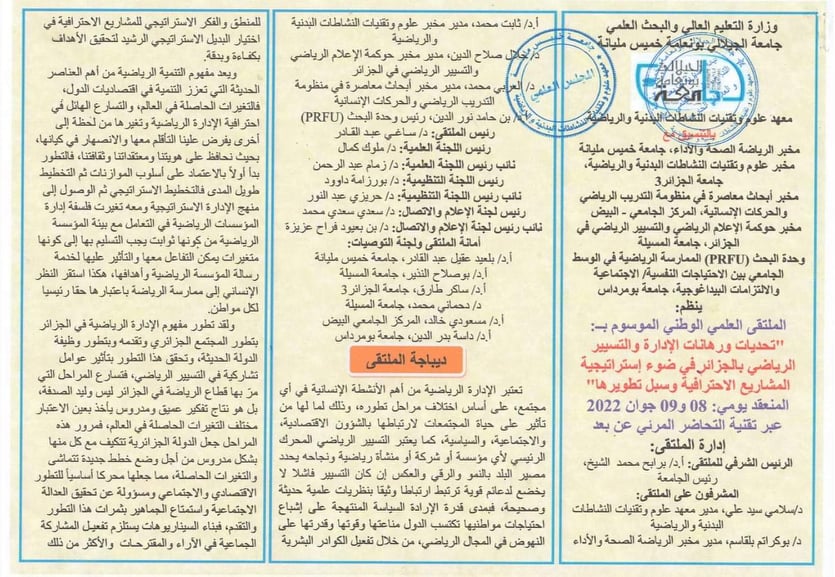 وزارة التعليم العالي والبحث العلمي
جامعة الجيلالي بونعامة خميس مليانة
معهد علوم وتقنيات النشاطات البدنية والرياضية
بالتنسيق مع
مخبر الرياضة الصحة والأداء، جامعة خميس مليانة
مخبر علوم وتقنيات النشاطات البدنية والرياضية،
جامعة الجزائر3
مخبر أبحاث معاصرة في منظومة التدريب الرياضي
والحركات الإنسانية، المركز الجامعي - البيض
مخبر حوكمة الإعلام الرياضي والتسيير الرياضي في
الجزائر، جامعة المسيلة
وحدة البحث (PRFU) الممارسة الرياضية في الوسط
الجامعي بين الاحتياجات النفسية/ الاجتماعية
والالتزامات البيداغوجية، جامعة بومرداس
ينظم:
الملتقى العلمي الوطني الموسوم بــ:
"تحديات ورهانات الإدارة والتسيير
الرياضي بالجزائر في ضوء إستراتيجية
المشاريع الاحترافية وسبل تطويرها"
المنعقد يومي: 08 و09 جوان 2022
عبر تقنية التحاضر المرئي عن بعد
إدارة الملتقى:
الرئيس الشرفي للملتقى: أ.د/ برابح محمد الشيخ،
رئيس الجامعة
المشرفون على الملتقى:
د/سلامي سيد علي، مدير معهد علوم وتقنيات النشاطات
البدنية والرياضية
د/ بوكراتم بلقاسم، مدير مخبر الرياضة الصحة والأداء
أ.د/ ثابت محمد، مدير مخبر علوم وتقنيات النشاطات البدنية
والرياضية
د/جلال صلاح الدين، مدير مخبر حوكمة الإعلام الرياضي
والتسيير الرياضي في الجزائر
د/ العربي محمد، مدير مخبر أبحاث معاصرة في منظومة
التدريب الرياضي والحركات الإنسانية
د/ بن حامد نور الدين، رئيس وحدة البحث (PRFU)
رئيس الملتقى: د/ ساغي عبد القادر
رئيس اللجنة العلمية: د/ ملوك كمال
نائب رئيس اللجنة العلمية: د/ زمام عبد الرحمن
رئيس اللجنة التنظيمية: د/ بورزامة داوود
نائب رئيس اللجنة التنظيمية: د/ حريزي عبد النور
رئيس لجنة الإعلام والاتصال: د/ سعدي سعدي محمد
نائب رئيس لجنة الإعلام والاتصال: د/ بن بعيود فراح عزيزة
أمانة الملتقى ولجنة التوصيات:
أ.د/ بلعيد عقيل عبد القادر، جامعة خميس مليانة
أ.د/ بوصلاح النذير، جامعة المسيلة
أ.د/ ساكر طارق، جامعة الجزائر3
د/ دحماني محمد، جامعة المسيلة
أ.د/ مسعودي خالد، المركز الجامعي البيض
أ.د/ داسة بدر الدين، جامعة بومرداس
ديباجة الملتقى
تعتبر الإدارة الرياضية من أهم الأنشطة الإنسانية في أي
مجتمع، على أساس اختلاف مراحل تطوره، وذلك لما لها من
تأثير على حياة المجتمعات لارتباطها بالشؤون الاقتصادية،
والاجتماعية، والسياسية، كما يعتبر التسيير الرياضي المحرك
الرئيسي لأي مؤسسة أو شركة أو منشأة رياضية ونجاحه يحدد
مصير البلد بالنمو والرقي والعكس إن كان التسيير فاشلا لا
يخضع لدعائم قوية ترتبط ارتباطا وثيقا بنظريات علمية حديثة
وصحيحة، فبمدى قدرة الإرادة السياسة المنتهجة على إشباع
احتياجات مواطنيها تكتسب الدول مناعتها وقوتها وقدرتها على
النهوض في المجال الرياضي، من خلال تفعيل الكوادر البشرية
للمنطق والفكر الاستراتيجي للمشاريع الاحترافية في
اختيار البديل الاستراتيجي الرشيد لتحقيق الأهداف
بكفاءة وبدقة.
ويعد مفهوم التنمية الرياضية من أهم العناصر
الحديثة التي تعزز التنمية في اقتصاديات الدول،
فالتغيرات الحاصلة في العالم، والتسارع الهائل في
احترافية الإدارة الرياضية وتغيرها من لحظة إلى
أخرى يفرض علينا التأقلم معها والانصهار في كيانها،
بحيث نحافظ على هويتنا ومعتقداتنا وثقافتنا، فالتطور
بدأ أولاً بالاعتماد على أسلوب الموازنات ثم التخطيط
طويل المدى فالتخطيط الاستراتيجي ثم الوصول إلى
منهج الإدارة الاستراتيجية ومعه تغيرت فلسفة إدارة
المؤسسات الرياضية في التعامل مع بيئة المؤسسة
الرياضية من كونها ثوابت يجب التسليم بها إلى كونها
متغيرات يمكن التفاعل معها والتأثير عليها لخدمة
رسالة المؤسسة الرياضية وأهدافها، هكذا استقر النظر
الإنساني إلى ممارسة الرياضة باعتبارها حقا رئيسيا
لكل مواطن.
ولقد تطور مفهوم الإدارة الرياضية في الجزائر
بتطور المجتمع الجزائري وتقدمه وبتطور وظيفة
الدولة الحديثة، وتحقق هذا التطور بتأثير عوامل
تشاركية في التسيير الرياضي، فتسارع المراحل التي
مرّ بها قطاع الرياضة في الجزائر ليس وليد الصدفة،
بل هو نتاج تفكير عميق ومدروس يأخذ بعين الاعتبار
مختلف التغيرات الحاصلة في العالم، فمرور هذه
المراحل جعل الدولة الجزائرية تتكيف مع كل منها
بشكل مدروس من أجل وضع خطط جديدة تتماشى
والتغيرات الحاصلة، مما جعلها محركا أساسياً للتطور
الاقتصادي والاجتماعي ومسؤولة عن تحقيق العدالة
الاجتماعية واستمتاع الجماهير بثمرات هذا التطور
والتقدم، فبناء السيناريوهات يستلزم تفعيل المشاركة
الجماعية في الآراء والمقترحات والأكثر من ذلك
المجلس العلمي